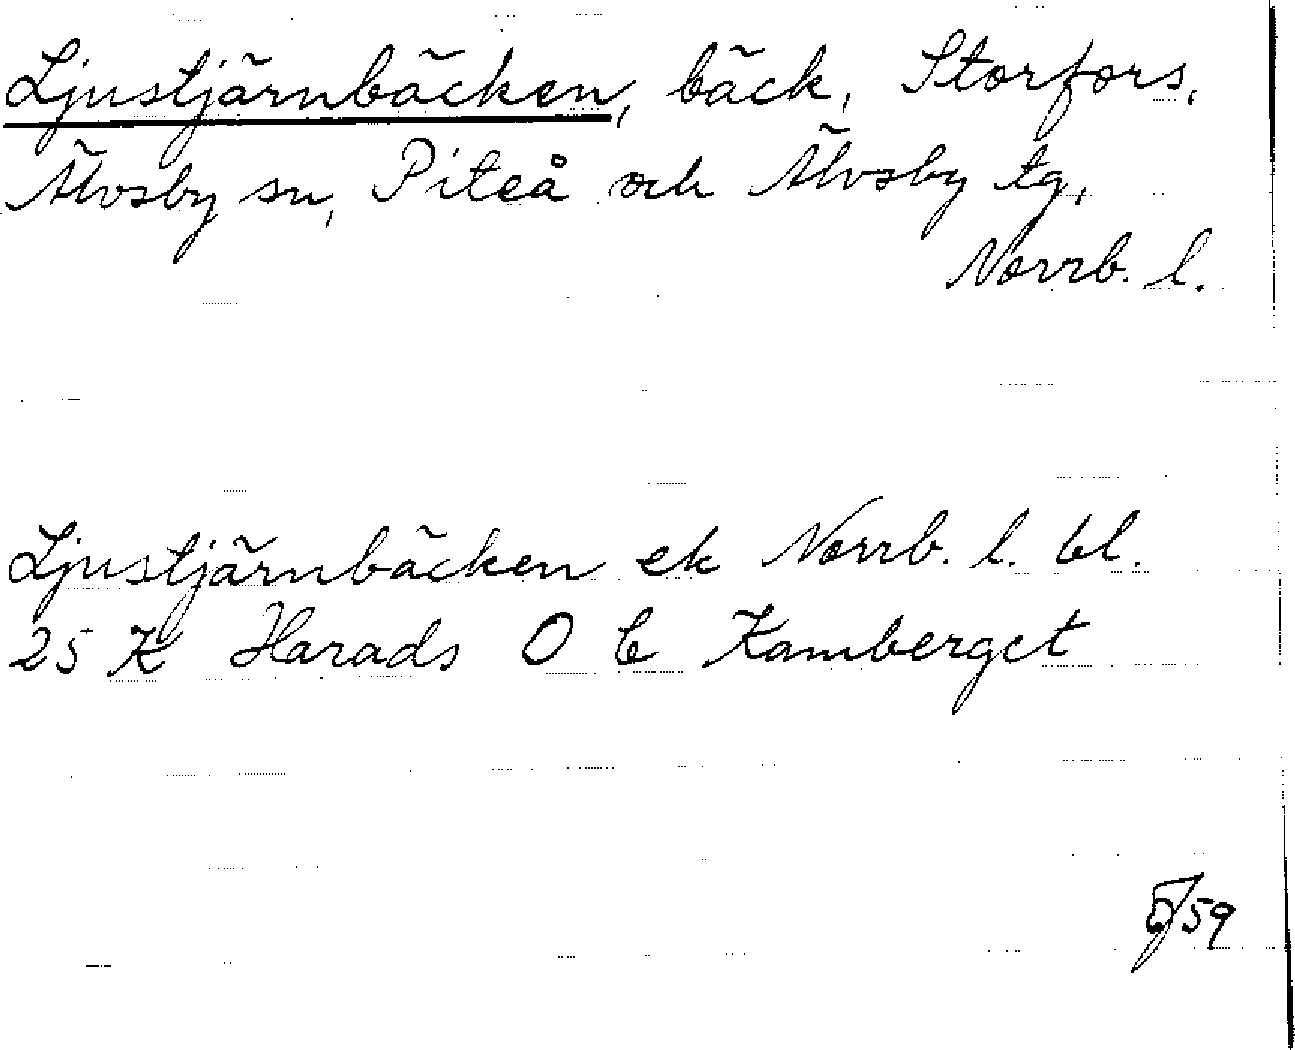 Ljustjärnbäcken, bäck, Storfors,
Älvsby sn, Piteå och Älvsby tg,
Norrb. l.
Ljustjärnbäcken ek Norrb. l. bl.
25 K Harads O C Kamberget